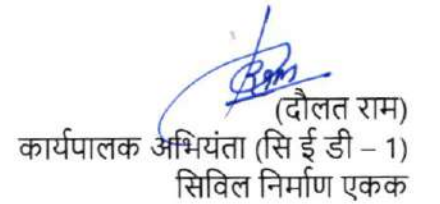 (दौलत राम)
कार्यपालक अभियंता (सि ई डी – 1)
सिविल निर्माण एकक